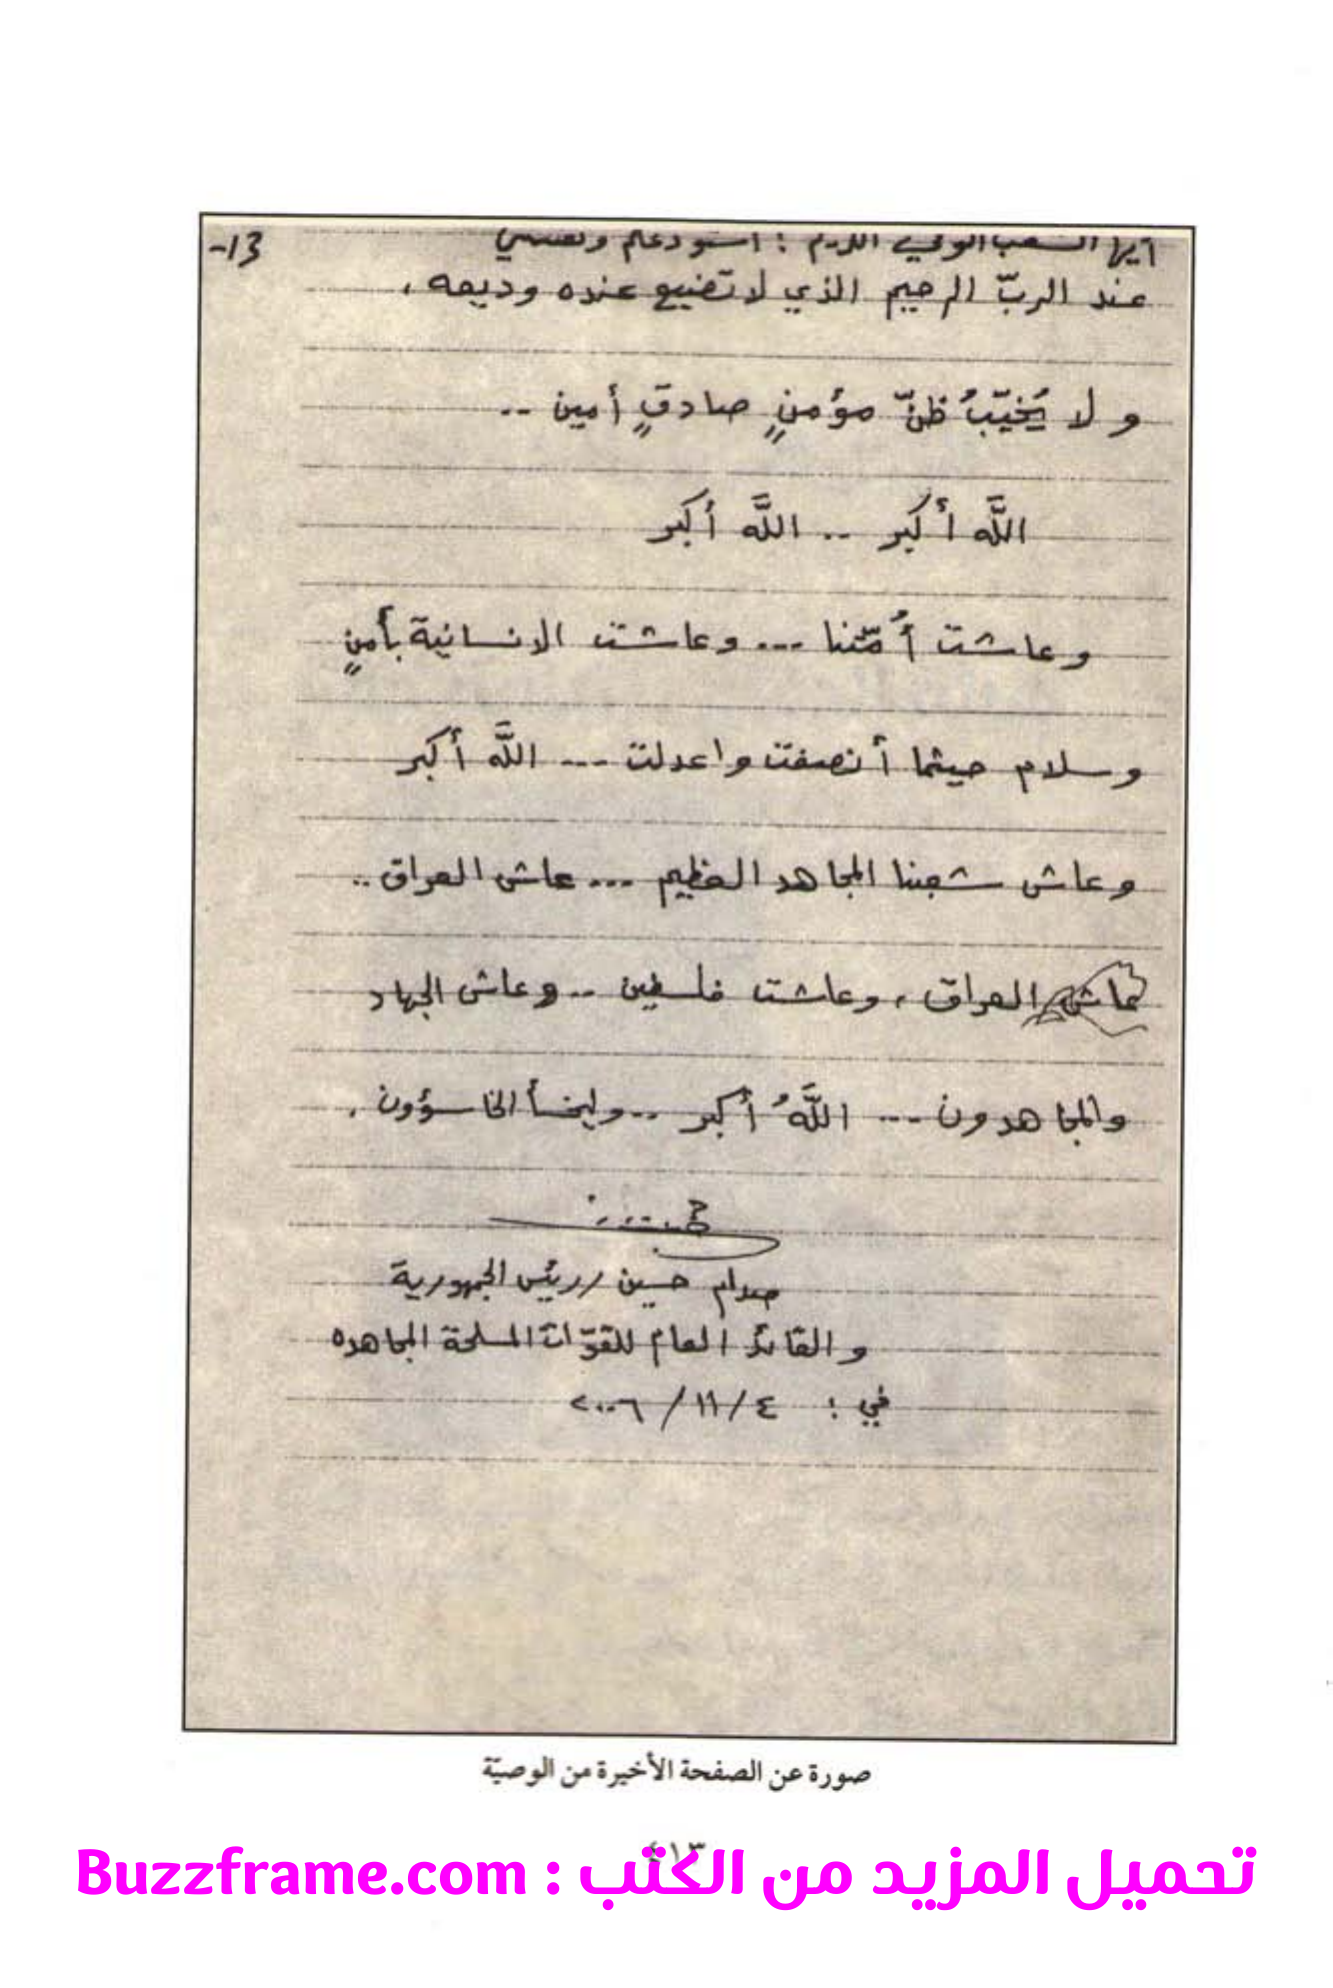 13-
أيها الشعب الوفي الكريم : استودعكم ونفسي
عند الربّ الرحيم الذي لا تضيع عنده وديعه ،
و لا يُخيّبُ ظنّ مؤمنٍ صادقٍ أمين ..
اللَّه أكبر .. اللَّه أكبر
وعاشت أُمّتنا ... وعاشت الانسانية بأمنٍ
وسلام حيثما أنصفت واعدلت ... اللَّه أكبر
وعاش شعبنا المجاهد العظيم ... عاش العراق ..
عاش العراق ، وعاشت فلسطين .. وعاش الجهاد
والمجاهدون ... اللَّهُ أكبر .. وليخسأ الخاسؤون .
صدام حسين / رئيس الجمهورية
والقائد العام للقوّات المسلحة المجاهده
في : ٤ / ١١ / ٢٠٠٦
صورة عن الصفحة الأخيرة من الوصيّة
٤١٣
تحميل المزيد من الكتب : Buzzframe.com